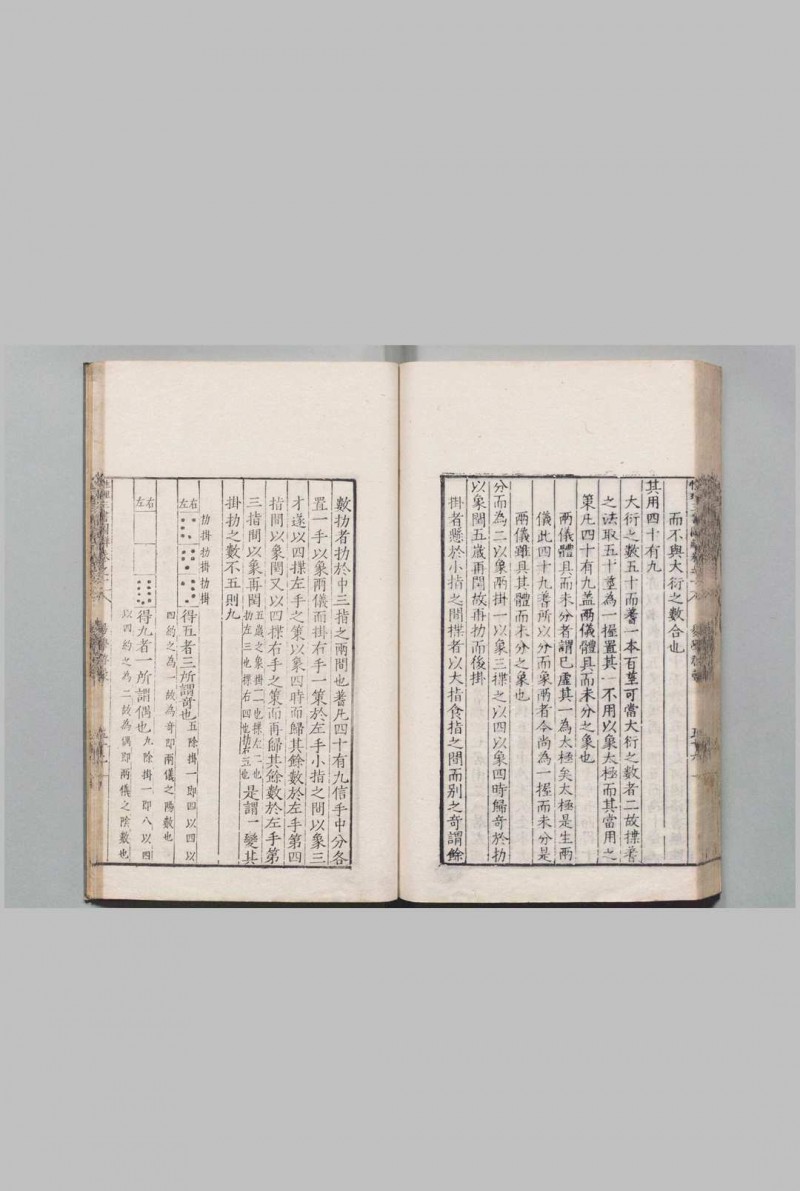 而不與大衍之數合也
其用四十有九
大衍之數五十而蓍一本百莖可當大衍之數者二故揲蓍
之法取五十莖為一握置其一不用以象太極而其當用之
策凡四十有九蓋兩儀體具而未分之象也
兩儀體具而未分者謂已虛其一為太極矣太極是生兩
儀此四十九蓍所以分而象兩者今尚為一握而未分是
兩儀雖具其體而未分之象也
分而為二以象兩掛一以象三揲之以四以象四時歸奇於扐
以象閏五歲再閏故再扐而後掛
掛者懸於小指之間揲者以大指食指之間而別之奇謂餘
數扐者扐於中三指之兩間也蓍凡四十有九信手中分各
置一手以象兩儀而掛右手一策於左手小指之間以象三
才遂以四揲左手之策以象四時而歸其餘數於左手第四
指間以象閏又以四揲右手之策而再歸其餘數於左手第
三指間以象再閏五歲之象掛一一也揲左二也
扐左三也揲右四也扐右五也是謂一變其
掛扐之數不五則九
扐掛扐掛扐掛
右
左
得五者三所謂奇也五除掛一即四以四
四約之為一故為奇即兩儀之陽數也
右
左
得九者一所謂偶也九除掛一即八以四
以四約之為二故為偶即兩儀之陰數也